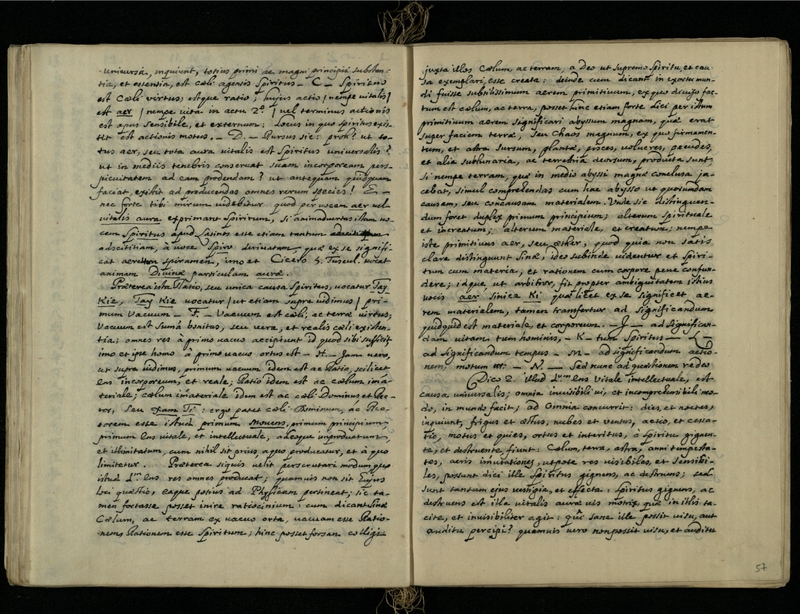 universa, inquiunt, totius primi ac magni principii substan-
tia, et essentia, est Cœli agentis Spiritus - C - Spiritus
est Cœli virtus, ejusque ratio; hujus actio / nempe vitalis /
est aer / nempe vita in actu 2º / vel terminus actionis
est apus sensibile, et externum; Locus in quo spiritus exis-
tit est actionis motus. - D. - Rursus sic: proh? ut to-
tus aer, seu tota aura vitalis est Spiritus universalis?
ut in mediis tenebris conservat suam incorpoream pers-
picuitatem ad eam prodendam? ut antequam quidquam
faciat, exilit ad producendas omnes rerum species! E -
nec forte tibi mirum videbitur quod per vocem aer vel
vitalis aura exprimant Spiritum, si animadvertas illam vo-
cem Spiritus apud Latinos esse etiam tantum
adscititiam, a voce Spiro derivatam quæ ex se signifi-
cat spiramen, imo et Cicero 5. Tuscul. vocat
animam Divinæ particulam auræ.
Præterea ista Ratio, seu unica causa Spiritus, vocatur Tay
Kie, Tay Kie vocatur / ut etiam supra vidimus / pri-
mum Vacuum - F - Vacuum est cœli, ac terræ virtus,
Vacuum est summa bonitas, seu vera, et realis cœli existen-
tia; omnes res à primo vacuo accipiunt id quod sibi sufficit
imo et ipse homo à primo vacuo ortus est - H - Jam vero,
ut supra vidimus, primum vacuum idem est ac Ratio, scilicet
Ens incorporeum, et reale; Ratio idem est ac cœlum imma-
teriale; cœlum immateriale idem est ac cœli Dominus, et Rec-
tor, seu Xam Ti: ergo patet cœli Dominum, ac Rec-
torem esse istud primum movens, primum principium,
primum Ens vitale, et intellectuale, adeoque improductum,
et illimitatum, cum nihil sit prius a quo producatur, et a quo
limitetur. Præterea siquis velit perscrutari modum quo
istud 1um Ens res omnes producat; quamvis non sit hujus
loci quæstio, eaque potius ad Physicam pertineat; sic ta-
men fortasse posset inire ratiocinium: cum dicant Sinæ
Cœlum, ac terram ex vacuo orta, vacuum esse Ratio-
nem, Rationem esse Spiritum; hinc posset forsan collige
juxta illos Cœlum, ac terram, a Deo ut Supremo Spiritu, et cau-
sa exemplari, esse creata: deinde cum dicant in exortu mun-
di fuisse subtilissimum aerem primitivum, ex quo diviso fac-
tum est cœlum, ac terra, posset sine etiam forte dici per istum
primitivum aerem significari abyssum magnam, quæ erat
super faciem terræ, seu Chaos magnum, ex quo firmamen-
tum, et astra sursum, plantæ, pisces, volucres, pecudes,
et alia sublunaria, ac terrestria deorsum, producta sunt;
si nempe terram, quæ in medio abyssi magno conclusa ja-
cebat, simul comprehendas cum hac abysso ut quoddam
causam, seu concausam materialem. Unde sic distinguen-
dum foret duplex primum principium; alterum Spirituale
et increatum; alterum materiale, et creatum; nempe
iste primitivus aer, seu æther, quod quia non satis
clare distinguunt Sinæ, ideo subinde videntur et Spiri-
tum cum materia, et rationem cum corpore pene confun-
dere; idque, ut arbitror, fit propter ambiguitatem istius
vocis aer Sinice Ki quæ licet ex se significet ae-
rem materialem, tamen transfertur ad significandum
quidquid est materiale et corporeum. - J - ad significan-
dam vitam tum hominis, - K - tum Spiritus - L -
ad significandum tempus - M - ad significandum actio-
nem, motum &c. - N. - Sed nunc ad quæstionem redeo
Dico 2. illud 1um Ens vitale intellectuale, est
causa universalis; omnia invisibili vi, et incomprehensibili mo-
do, in mundo facit; ad omnia concurrit: dies, et noctes,
inquiunt, frigus et æstus, nubes et ventus, actio, et cessa-
tio, motus et quies, ortus et interitus, à Spiritu gignen-
te, et destruente, fiunt: Cœlum, terra, astra, anni tempesta-
tes, aeris, utpote res visibiles, et sensibi-
les, possunt dici ille Spiritus gignens, ac destruens; sed
sunt tantum ejus vestigia, et effecta: Spiritus gignens, ac
destruens est illa vitalis auræ vis motrix, quæ in illis ta-
cite, et invisibiliter agit: quis sane ille possit visu, aut
auditu percipi? quamvis vero non possit visu, et auditu
57